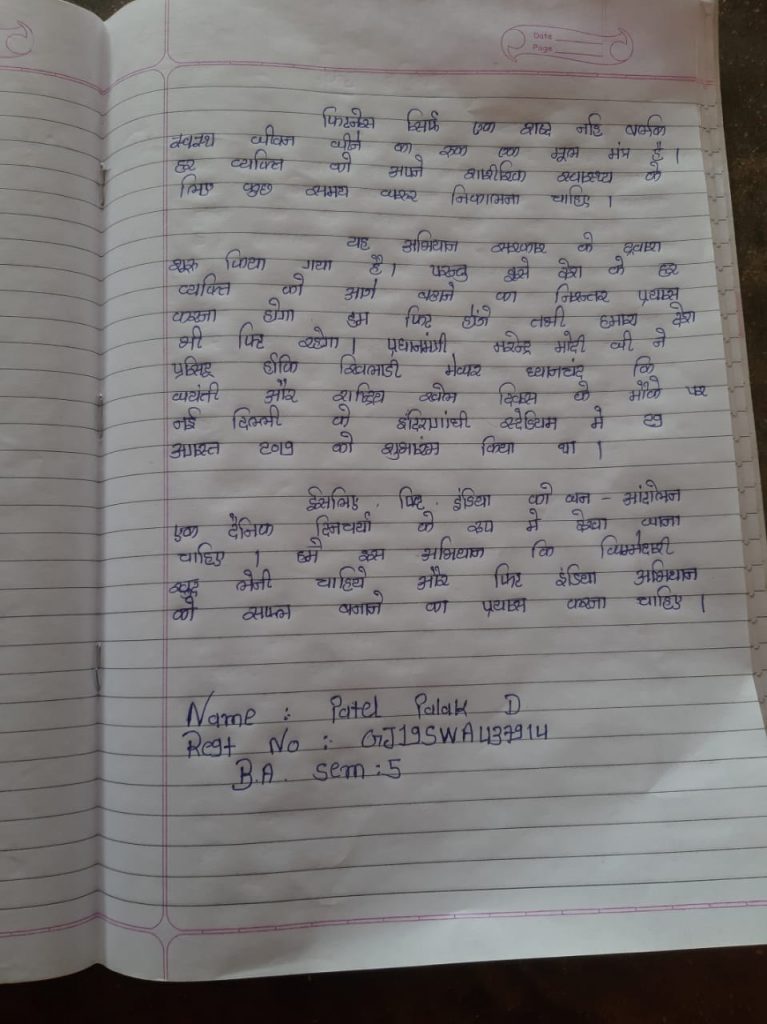 Date
Page
फिटनेस सिर्फ एक शब्द नहि बल्कि
स्वस्थ जीवन जीने का एक मूल मंत्र है ।
हर व्यक्ति को अपने शारीरिक स्वास्थ्य के
लिए कुछ समय जरुर निकालना चाहिए ।
यह अभियान सरकार के द्वारा
शुरु किया गया है । परन्तु इसे देश के हर
व्यक्ति को आगे बढाने का निरन्तर प्रयास
करना होगा हम फिट होंगे तभी हमारा देश
भी फिट रहेगा । प्रधानमंत्री नरेन्द्र मोदी जी ने
प्रसिद्ध होकि खिलाडी मेजर ध्यानचंद कि
जयंती और राष्ट्रिय खेल दिवस के मौके पर
नई दिल्ली के इंदिरागांधी स्टेडियम मे 29
अगस्त 2019 को शुभारंभ किया था ।
इसलिए फिट इंडिया को जन - आंदोलन
एक दैनिक दिनचर्या के रूप मे देखा जाना
चाहिए । हमे इस अभियान कि जिम्मेदारी
खुद लेनी चाहिये और फिट इंडिया अभियान
को सफल बनाने का प्रयास करना चाहिए ।
Name : Patel Palak D
Regt No : GJ19SWA437914
B.A. sem : 5